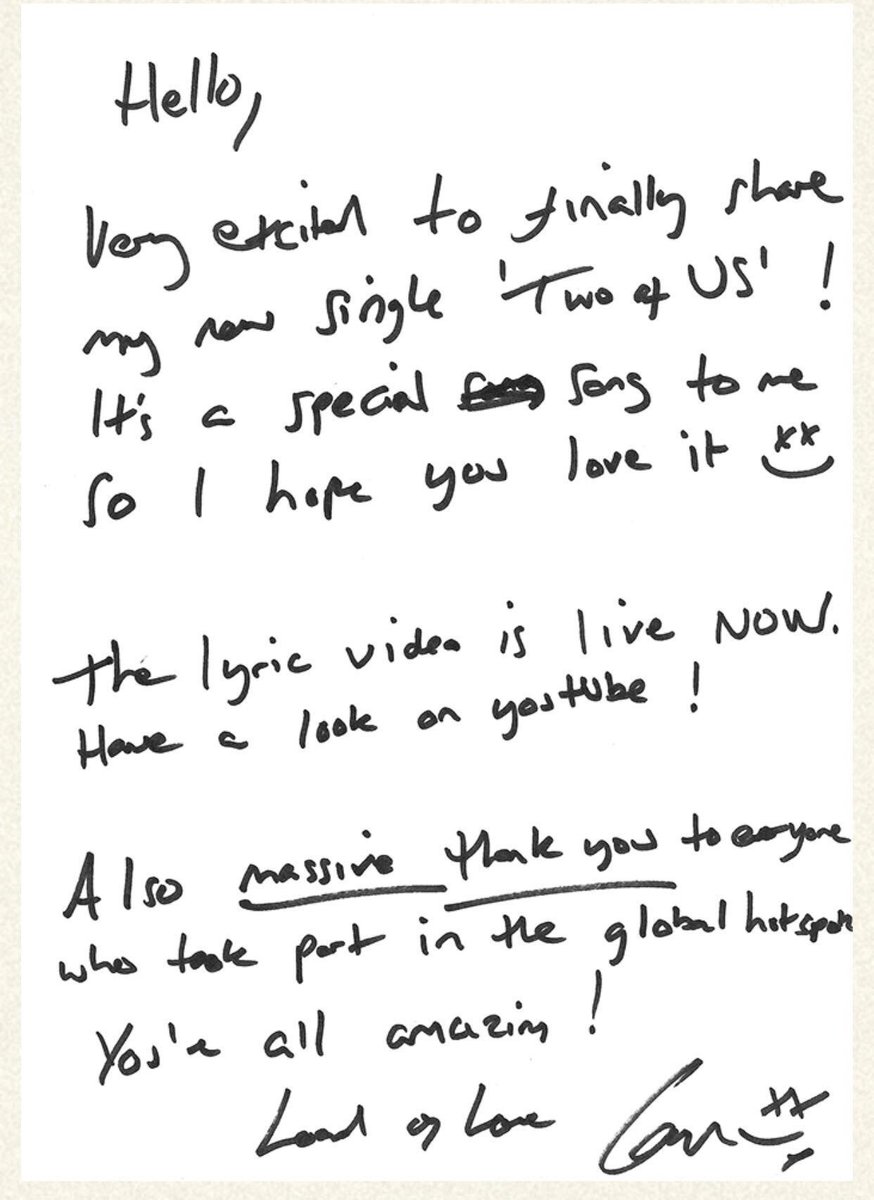 Hello,
Very excited to finally share
my new single 'Two of US' !
It's a special song to me
so I hope you love it xx
The lyric video is live NOW.
Have a look on youtube !
Also massive thank you to everyone
who took part in the global hotspots
You're all amazing !
Load of Love
xx